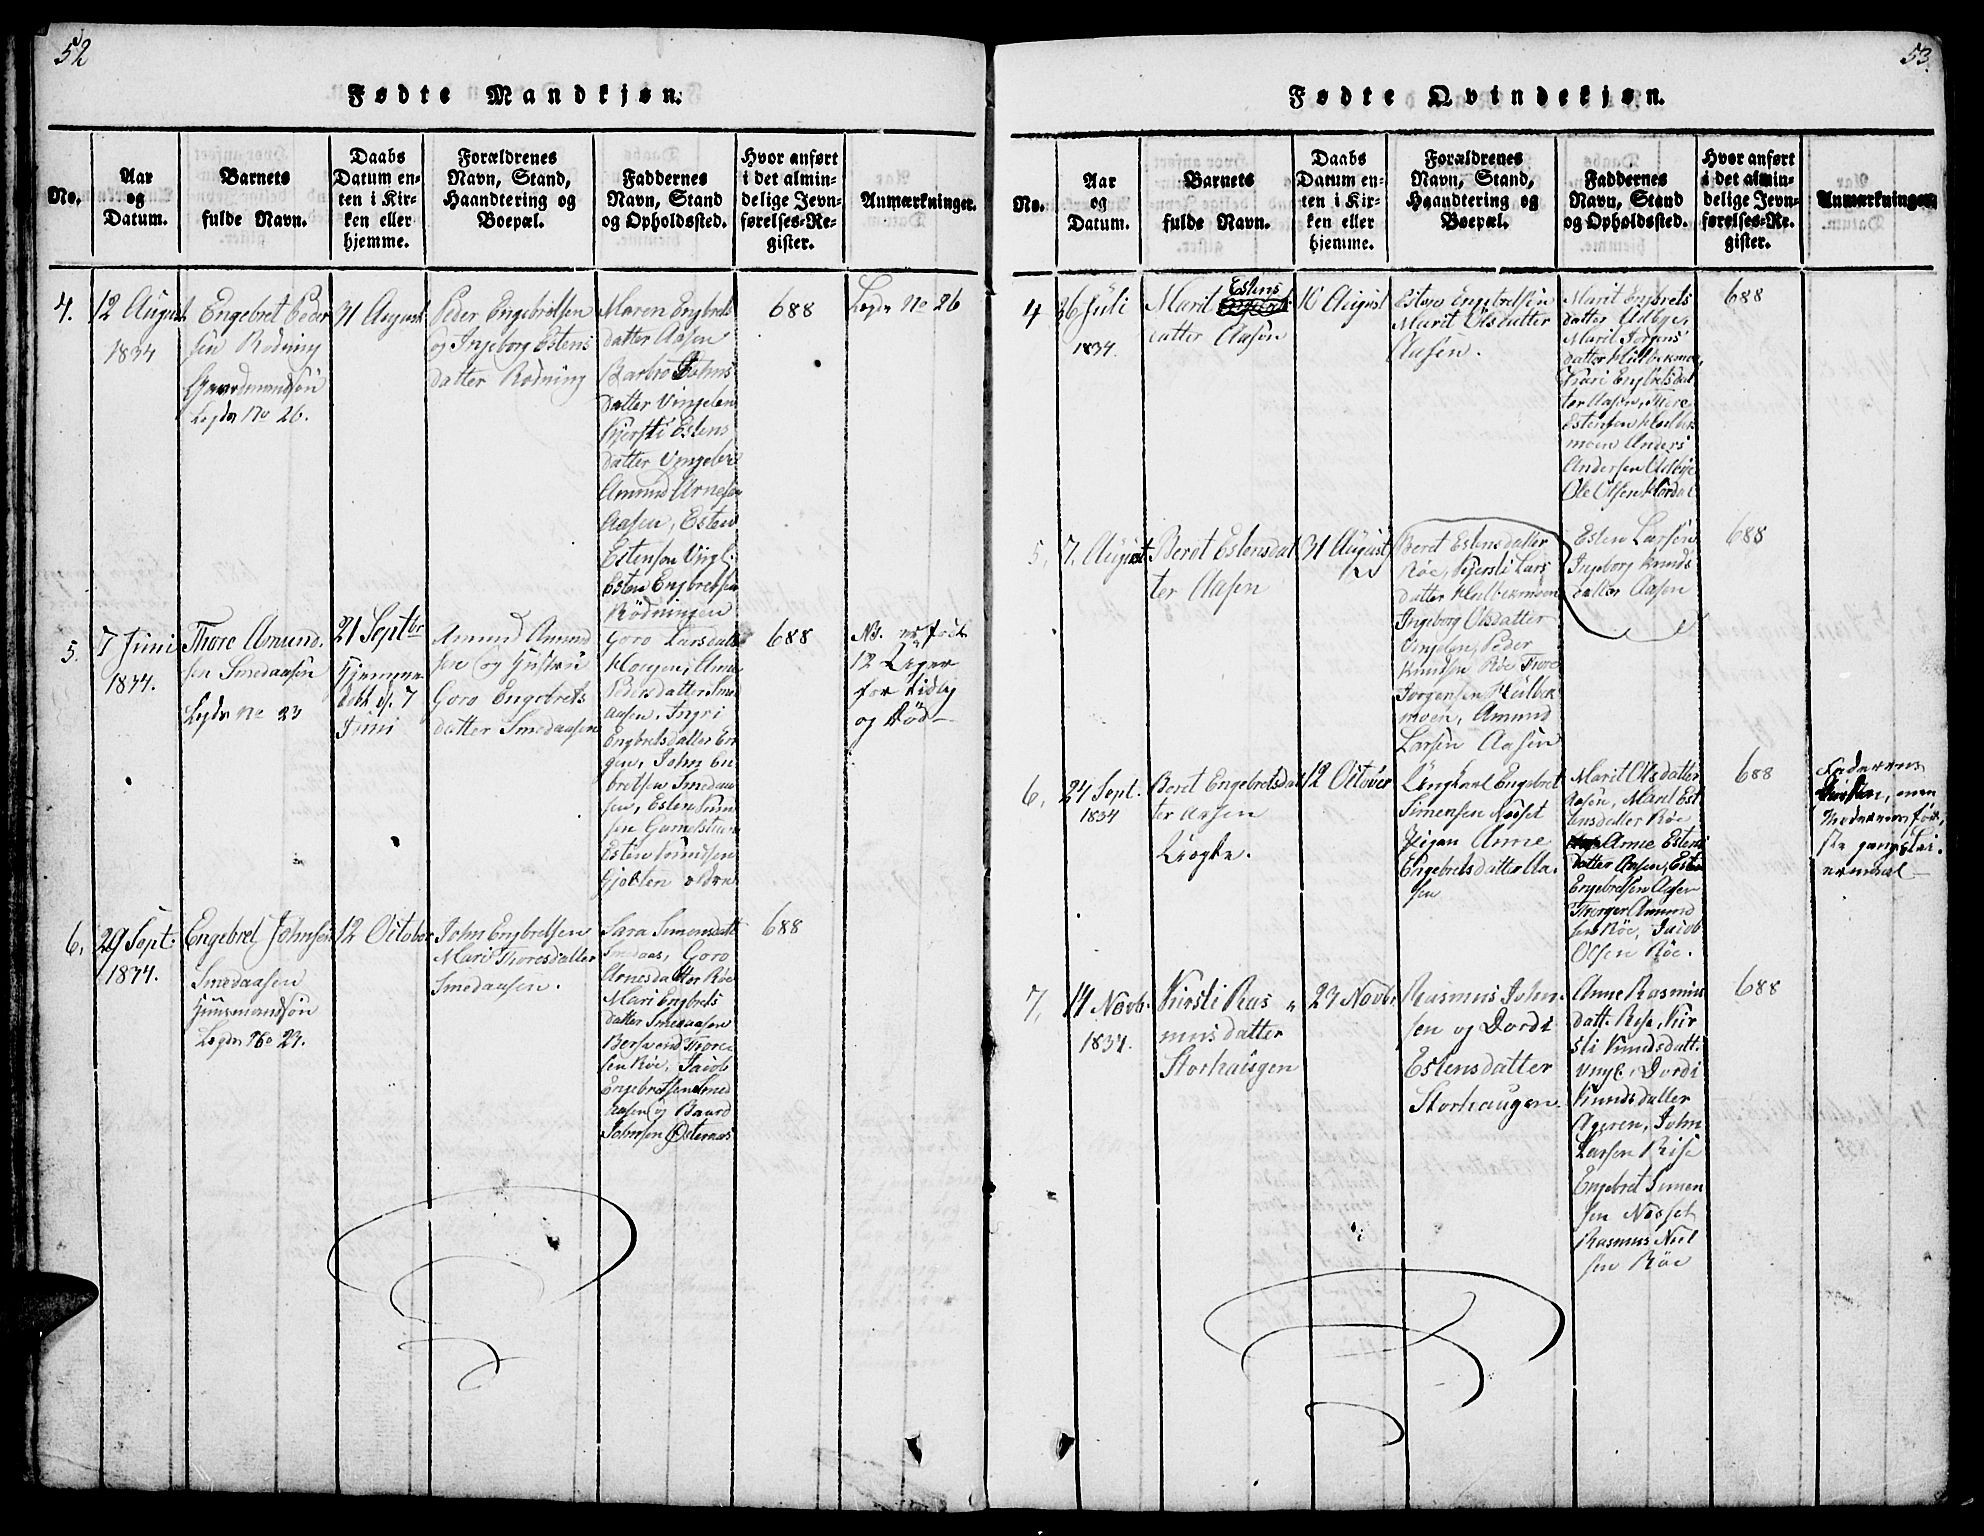 52
Fødte Mandkjøn.
No.
Aar
og
Datum.
Barnets
fulde Navn.
Daabs
Datum en-
ten i Kir-
ken eller
hjemme.
Forældrenes
Navn, Stand,
Haandtering og
Boepæl.
Faddernes
Navn, Stand
og Opholdssted.
Hvor anført
i det almin-
delige Jevn-
førelses-Re-
gister.
Anmærkninger.
4.
12 August
1834
Engebret Peder
sen Rödning
Gaardmandsön
Legds No 26.
31 August
Peder Engebretsen
og Ingeborg Estens
datter Rödning
Maren Engbrets
datter Aasen
Barbro Johns
datter Vingelen
Kjersti Estens
datter Vingelen
Amund Arnesen
Aasen, Esten
Estensen Vingl.
Esten Engbretsen
Rödningen
688
Legds No 26
5.
7 Juni
1834.
Thore Amund.
sen Smedaasen
Legds No 23
21 Septbr
Hjemme
döbt d. 7
Juni
Amund Amund
sen og Hustru
Goro Engebrets
datter Smedaasen
Goro Larsdatt
Hougen, Anne
Pedersdatter Smed
aasen, Ingri
Engbretsdatter En
gen, John En
bretsen Smedaa
sen, Esten
sen
Esten
688
Nb. född
12 Uger
for tidlig
og Död
6.
29 Sept.
1834.
Engebret Johnsen
Smedaasen
Huusmandsön
Legds No 23.
12 October
John Engbretsen
Marit Thoresdatter
Smedaasen.
Sara Simensdatt
Smedaas, Goro
Arnesdatter Röe
Mari Engbrets
datter Smedaasen
Bersvend Thore
sen Röe, Jacob
Engebretsen Smed
aasen og Baard
Johnsen Österaas
688
53.
Fødte Qvindekjøn.
No.
Aar
og
Datum.
Barnets
fulde Navn.
Daabs
Datum en-
ten i Kir-
ken eller
hjemme.
Forældrenes
Navn, Stand,
Haandtering og
Boepæl.
Faddernes
Navn, Stand
og Opholdssted.
Hvor anført
i det almin-
delige Jevn-
førelses-Re-
gister.
Anmærkninger.
4
26 Juli
1834.
Marit Estens
datter Aasen
10 August
Esten Engebretsen
Marit Olsdatter
Aasen.
Marit Engbrets
datter Udbye,
Marit Jorgens
datter Hulbekmoe,
Kari Engbretsdat
ter Aasen, Thore
Estensen Hulbek
moen Anders
Andersen Udbye
Ole Olsen
688
5.
7. August
Beret Estensdat
ter Aasen
31 August
Beret Estensdatter
Röe, Kjersti Lars
datter Hulbekmoen
Ingeborg Olsdatter
Vingelen, Peder
Knudsen Röe Thore
Jorgensen Hulbek
moen, Amund
Larsen Aasen
Esten Larsen
Ingeborg Knuds
datter Aasen
688
6.
24 Sept.
1834
Beret Engebretsdat
ter Aasen
Uægte.
12 October
Ungkarl Engebret
Simensen Nösset
Pigen Anne
Engebretsdatter Aa.
sen
Marit Olsdatter
Aasen, Marit Est
ensdatter Röe
Anne Estens
datter Aasen, Esten
Engebretsen Aasen
Thorger Amund
sen Röe, Jacob
Olsen Röe.
688
Faderens
men
Moderens för,
ste gangs Lei.
ermaal
7.
14 Novb.
1834.
Kirsti Ras
musdatter
Storhaugen
23 Novbr.
Rasmus John.
sen og Dordi
Estensdatter
Storhaugen.
Anne Rasmus
datt. Rise, Kir
sti Knudsdatt.
Vngl. Dordi
Knudsdatter
Ageren, John
Larsen Rise
Engebret Simen
sen Nösset
Rasmus Niel
sen Röe
688